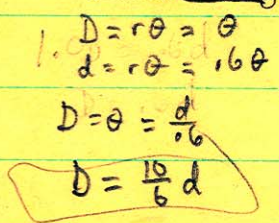 D = rθ = θ
d = rθ = .6θ
D = θ = d/.6
D = 10/6 d